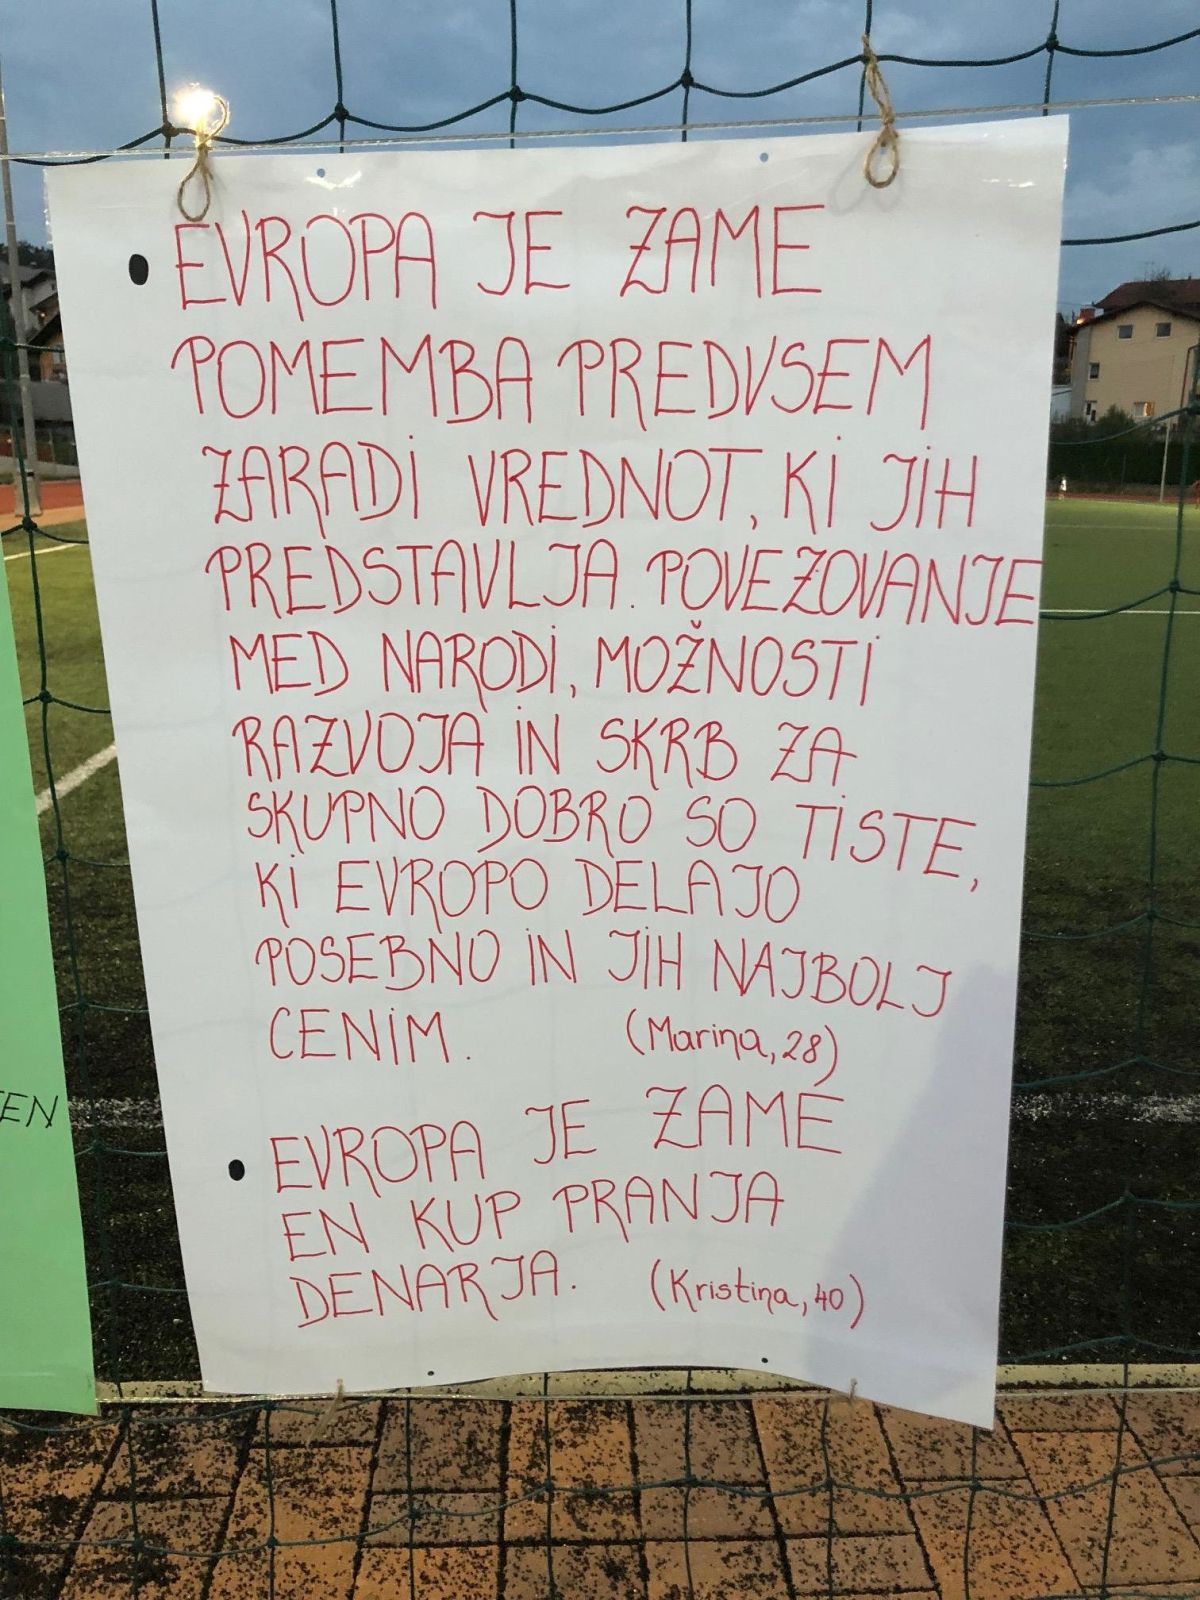 • EVROPA JE ZAME
POMEMBA PREDVSEM
ZARADI VREDNOT, KI JIH
PREDSTAVLJA. POVEZOVANJE
MED NARODI, MOŽNOSTI
RAZVOJA IN SKRB ZA
SKUPNO DOBRO SO TISTE,
KI EVROPO DELAJO
POSEBNO IN JIH NAJBOLJ
CENIM. (Marina, 28)
• EVROPA JE ZAME
EN KUP PRANJA
DENARJA. (Kristina, 40)